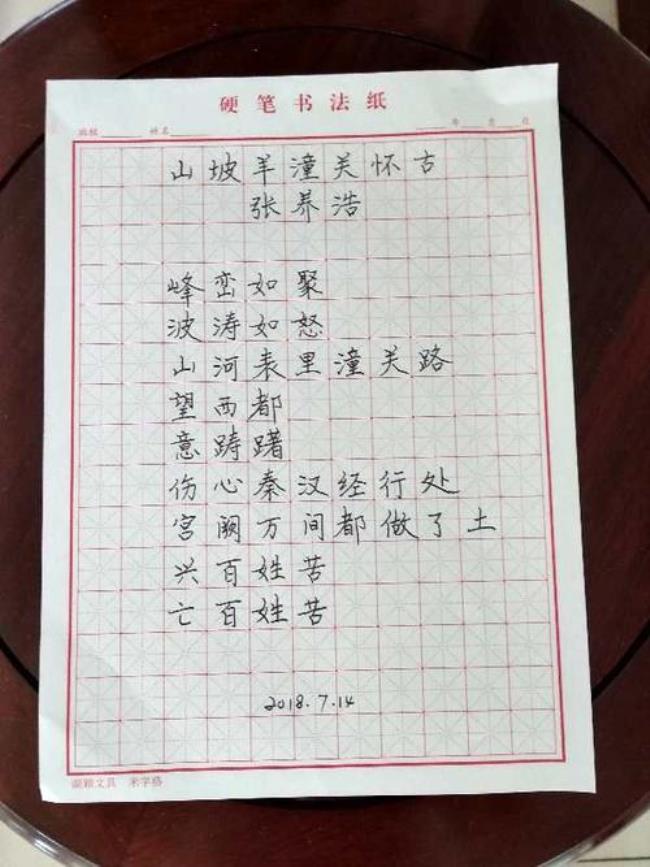 硬笔书法纸
班级 姓名 年 月 日
山坡羊潼关怀古
张养浩
峰峦如聚
波涛如怒
山河表里潼关路
望西都
意踌躇
伤心秦汉经行处
宫阙万间都做了土
兴百姓苦
亡百姓苦
2018.7.14
文具 米字格